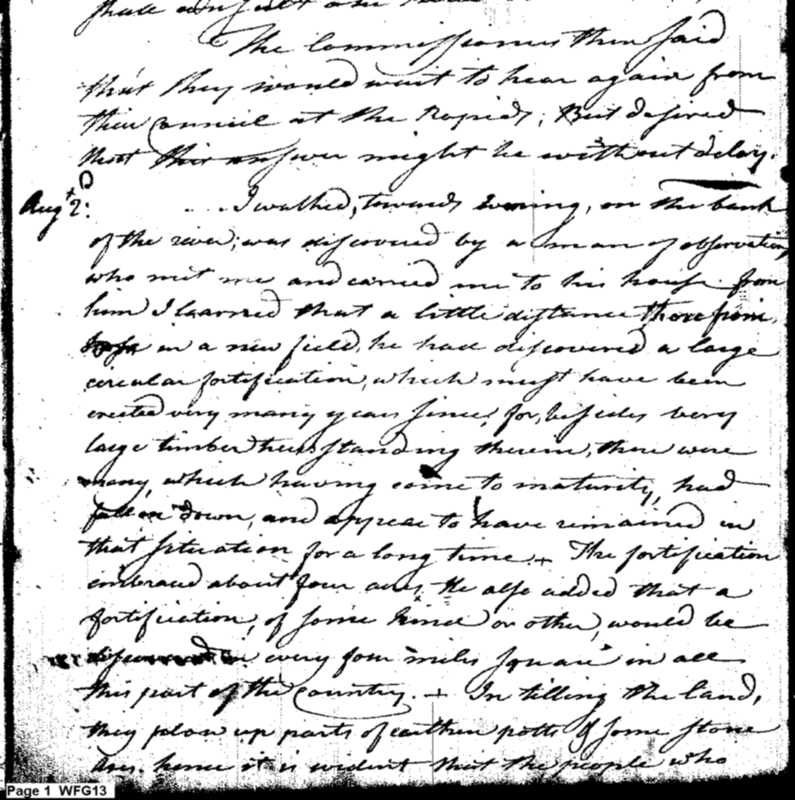 shall
The Commissioners then said
that they would wait to hear again from
their Council at the Rapids; But desired
that their answer might be without delay.
Augt 2d: I walked, towards Evening, on the bank
of the river; was discovered by a man of observation,
who met me and carried me to his house. from
him I learned that a little distance therefrom,
in a new field, he had discovered a large
circular fortification, which must have been
erected very many years since; for, besides very
large timber trees standing therein, there were
many which having come to maturity, had
fallen down, and appear to have remained in
that situation for a long time. + The fortification
embraced about four acres. He also added that a
fortification, of some kind or other, would be
discovered in every four miles square in all
this part of the country. + In tilling the land,
they plow up parts of earthen potts & some stone
hence it is evident that the people who
Page 1 WFG13